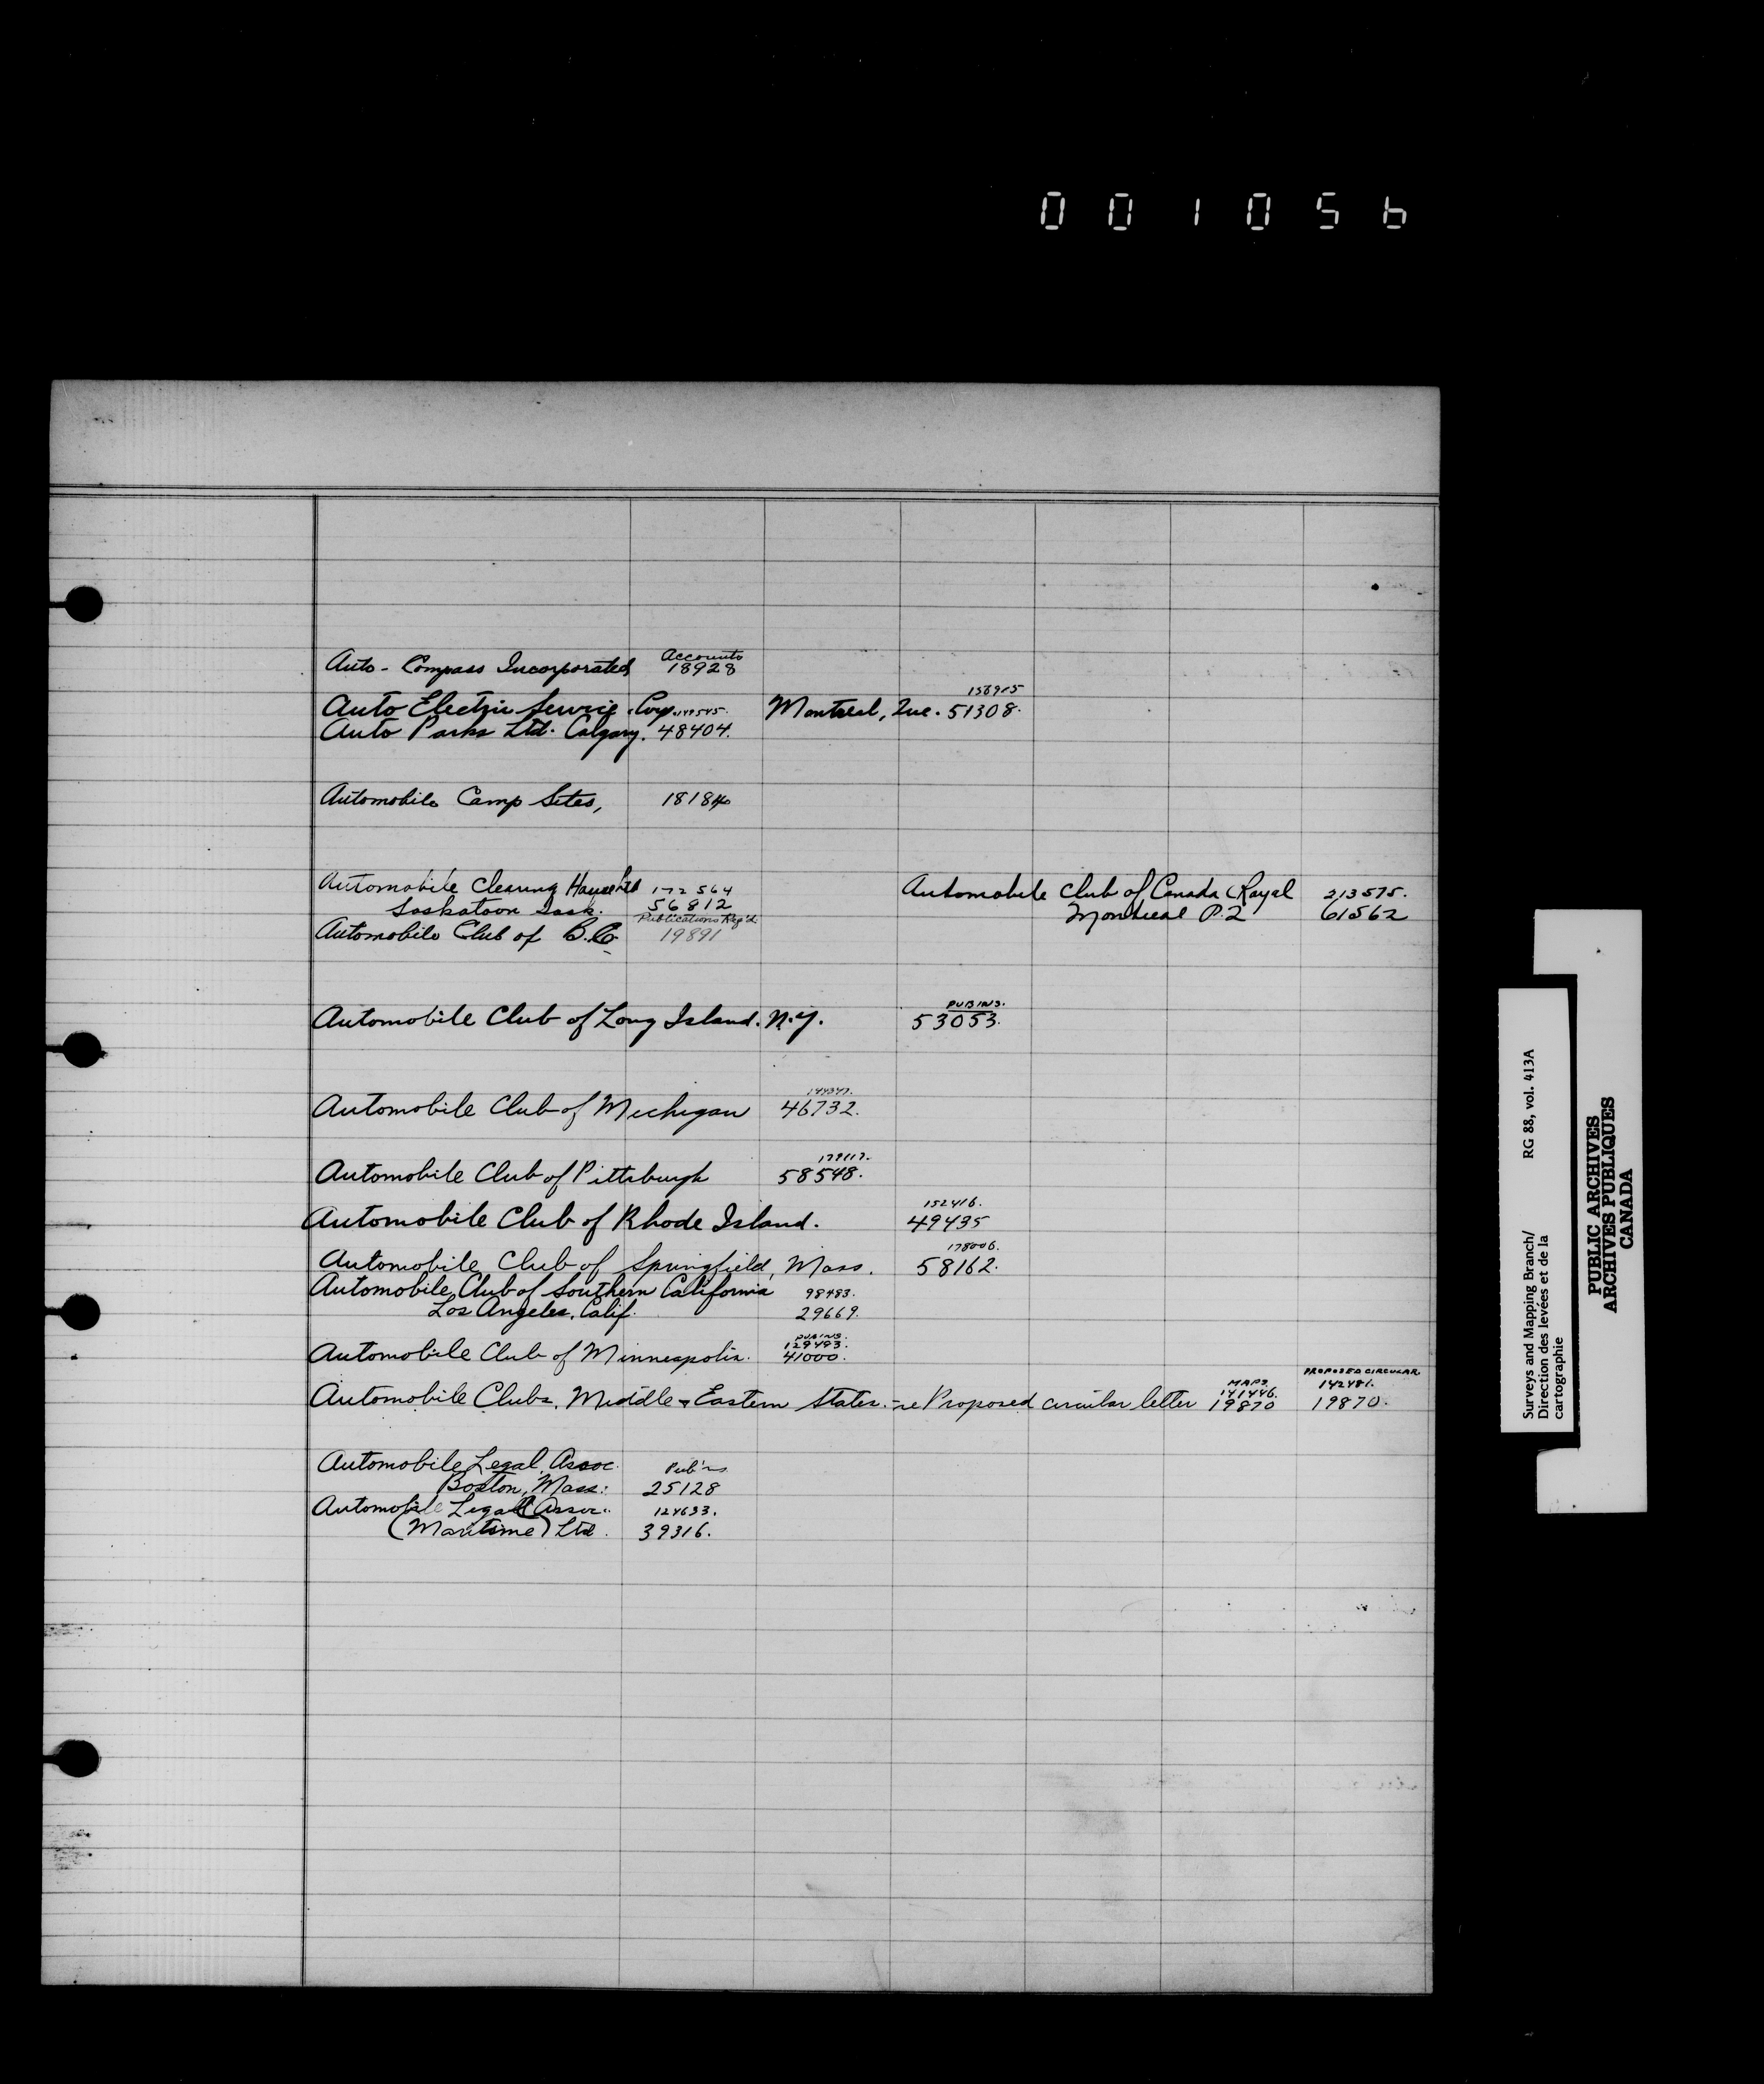 001056
Accounts
Auto-Compass Incorporated 18928
Auto Electric Service Corp. Montreal, Que. 51308.
Auto Parks Ltd. Calgary. 48404.
Automobile Camp Sites, 18184
Automobile Clearing House Ltd 172564 Automobile Club of Canada (Royal 213575.
Saskatoon Sask. 56812 Montreal P.Q 61562
Publications Req'd.
Automobile Club of B.C. 19891
Automobile Club of Long Island. N.Y. 53053.
Automobile Club of Michigan 46732.
Automobile Club of Pittsburgh 58548.
152416.
Automobile Club of Rhode Island. 49435
178006.
Automobile Club of Springfield, Mass. 58162.
Automobile Club of Southern California 98483.
Los Angeles, Calif. 29669.
129493.
Automobile Club of Minneapolis. 41000.
PROPOSED CIRCULAR.
MAPS. 142481.
141446.
Automobile Clubs, Middle & Eastern States. - re Proposed circular letter 19870 19870.
Automobile Legal Assoc. Pub'ns
Boston, Mass. 25128
Automobile Legal Assoc. 124633.
(Maritime) Ltd. 39316.
Surveys and Mapping Branch/ RG 88, vol. 413A
Direction des levées et de la
cartographie
PUBLIC ARCHIVES
ARCHIVES PUBLIQUES
CANADA